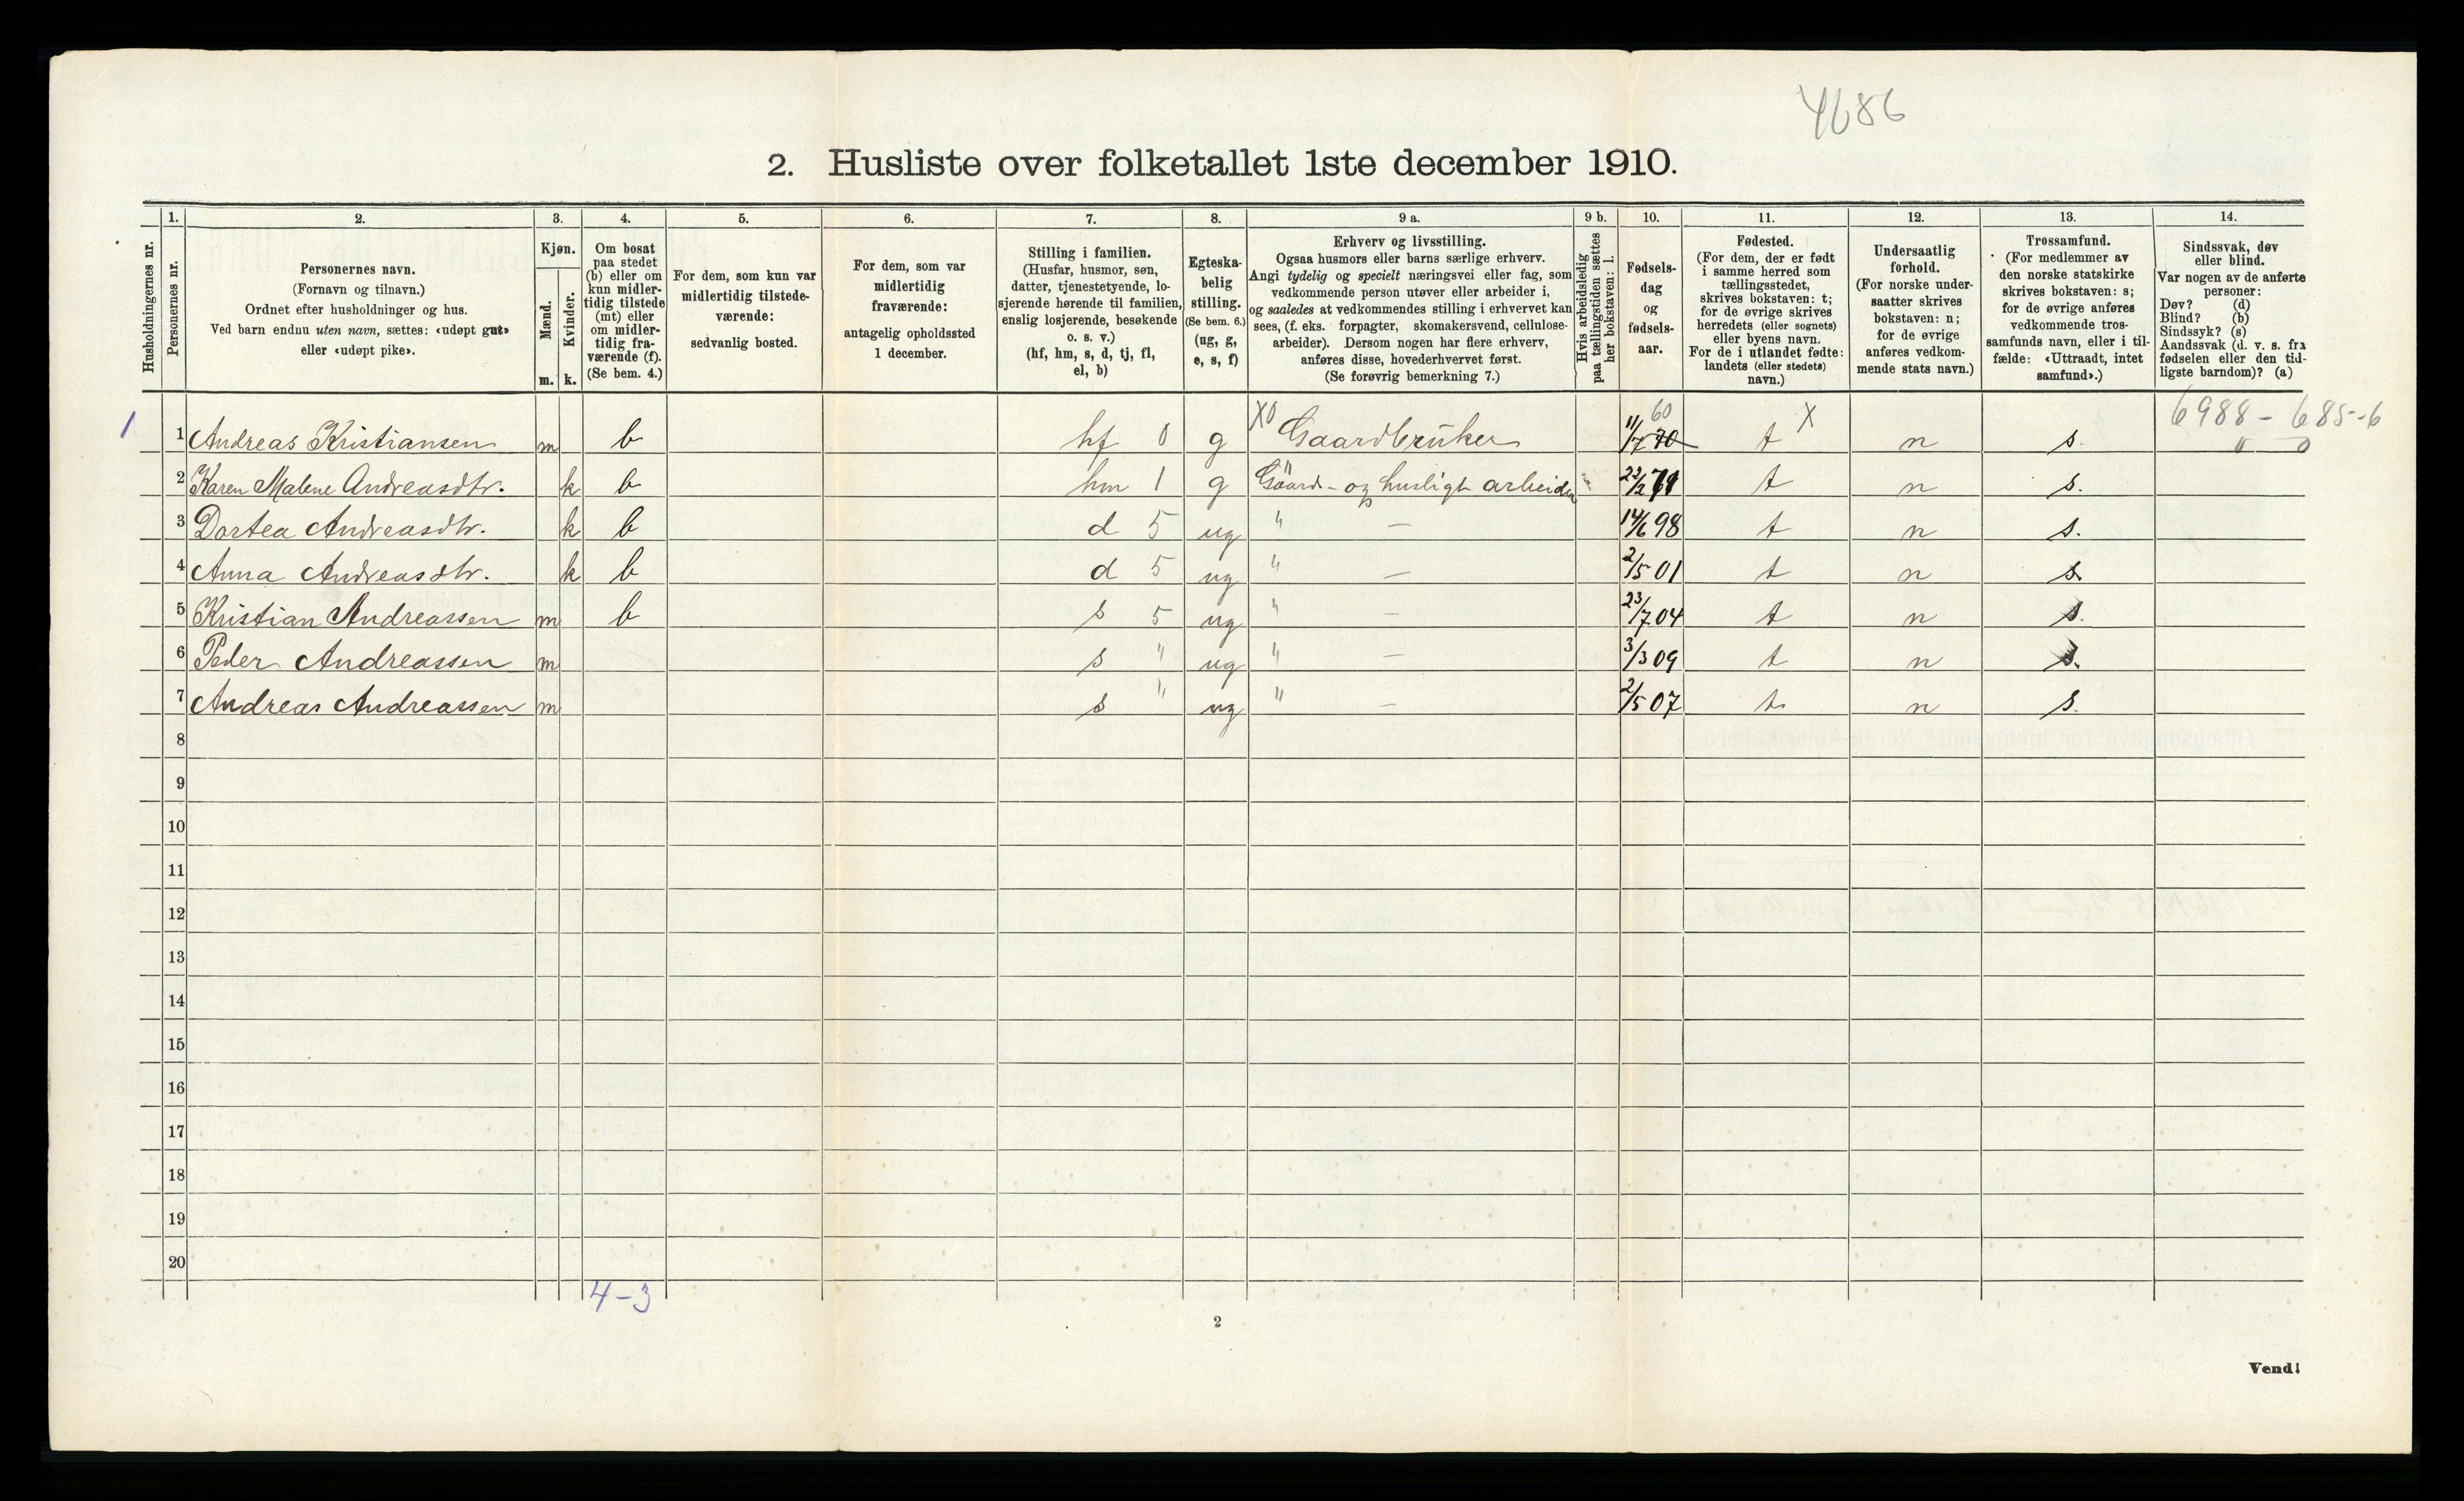 4686
2. Husliste over folketallet 1ste december 1910.
Husholdningernes nr.
1.
Personernes nr.
2.
Personernes navn.
(Fornavn og tilnavn.)
Ordnet efter husholdninger og hus.
Ved barn endnu uten navn, sættes: «udøpt gut»
eller «udøpt pike».
3.
Kjøn.
Mænd.
Kvinder.
m. k.
4.
Om bosat
paa stedet
(b) eller om
kun midler-
tidig tilstede
(mt) eller
om midler-
tidig fra-
værende (f).
(Se bem. 4.)
5.
For dem, som kun var
midlertidig tilstede-
værende:
sedvanlig bosted.
6.
For dem, som var
midlertidig
fraværende:
antagelig opholdssted
1 december.
7.
Stilling i familien.
(Husfar, husmor, søn,
datter, tjenestetyende, lo-
sjerende hørende til familien,
enslig losjerende, besøkende
o. s. v.)
(hf, hm, s, d, tj, fl,
el, b)
8.
Egteska-
belig
stilling.
(Se bem. 6.)
(ug, g,
e, s, f)
9 a.
Erhverv og livsstilling.
Ogsaa husmors eller barns særlige erhverv.
Angi tydelig og specielt næringsvei eller fag, som
vedkommende person utøver eller arbeider i,
og saaledes at vedkommendes stilling i erhvervet kan
sees, (f. eks. forpagter, skomakersvend, cellulose-
arbeider). Dersom nogen har flere erhverv,
anføres disse, hovederhvervet først.
(Se forøvrig bemerkning 7.)
9 b.
Hvis arbeidsledig
paa tællingstiden sættes
her bokstaven: l.
10.
Fødsels-
dag
og
fødsels-
aar.
11.
Fødested.
(For dem, der er født
i samme herred som
tællingsstedet,
skrives bokstaven: t;
for de øvrige skrives
herredets (eller sognets)
eller byens navn.
For de i utlandet fødte:
landets (eller stedets)
navn.)
12.
Undersaatlig
forhold.
(For norske under-
saatter skrives
bokstaven: n;
for de øvrige
anføres vedkom-
mende stats navn.)
13.
Trossamfund.
(For medlemmer av
den norske statskirke
skrives bokstaven: s;
for de øvrige anføres
vedkommende tros-
samfunds navn, eller i til-
fælde: «Uttraadt, intet
samfund».)
14.
Sindssvak, døv
eller blind.
Var nogen av de anførte
personer:
Døv? (d)
Blind? (b)
Sindssyk? (s)
Aandssvak (d. v. s. fra
fødselen eller den tid-
ligste barndom)? (a)
60 X 6988 - 685--6
1 1 Andreas Kristiansen m b hf 0 g X0 Gaardbruker 11/7 70 t n s. " 0
2 Karen Malene Andreasdtr. k b hm 1 g Gaards- og husligt arbeide t n s.
3 Dortea Andreasdtr. k b d 5 ug " — 14/6 98 t n s.
4 Anna Andreasdtr. k b d 5 ug " — 2/5 01 t n s.
5 Kristian Andreassen m b s 5 ug " — 23/7 04 t n s.
6 Peder Andreassen m s " ug " — 3/3 09 t n s.
7 Andreas Andreassen m s " ug " — 2/5 07 t. n s.
8
9
10
11
12
13
14
15
16
17
18
19
20
4-3
2
Vend!